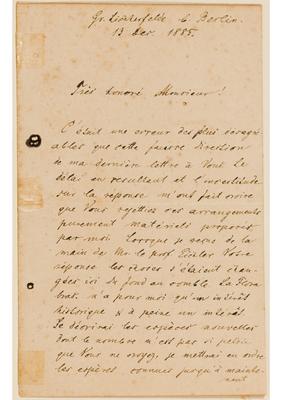 Gr. Lichterfelde b. Berlin.
13 Dec. 1885.
Très honoré Monsieur!
C'était une erreur des plus désagré-
ables que cette fausse direction
de ma dernière lettre à Vous. Le
délai en resultant et l'incertitude
sur la réponse m'ont fait croire
que Vous rejettiez ces arrangements
purement matériels proposés
par moi. Lorsque je reçus de la
main de Mr. le prof. Eichler Votre
réponse les choses s'étaient chan-
gées ici de fond au comble. La Flora
bras. n'a pour moi qu'un intérêt
historique & à peine un intérêt.
Je décrirai les espèces nouvelles
dont le nombre n'est pas si petit
que Vous ne croyez, je mettrai en ordre
les espèces connues jusqu'à mainte-
nant